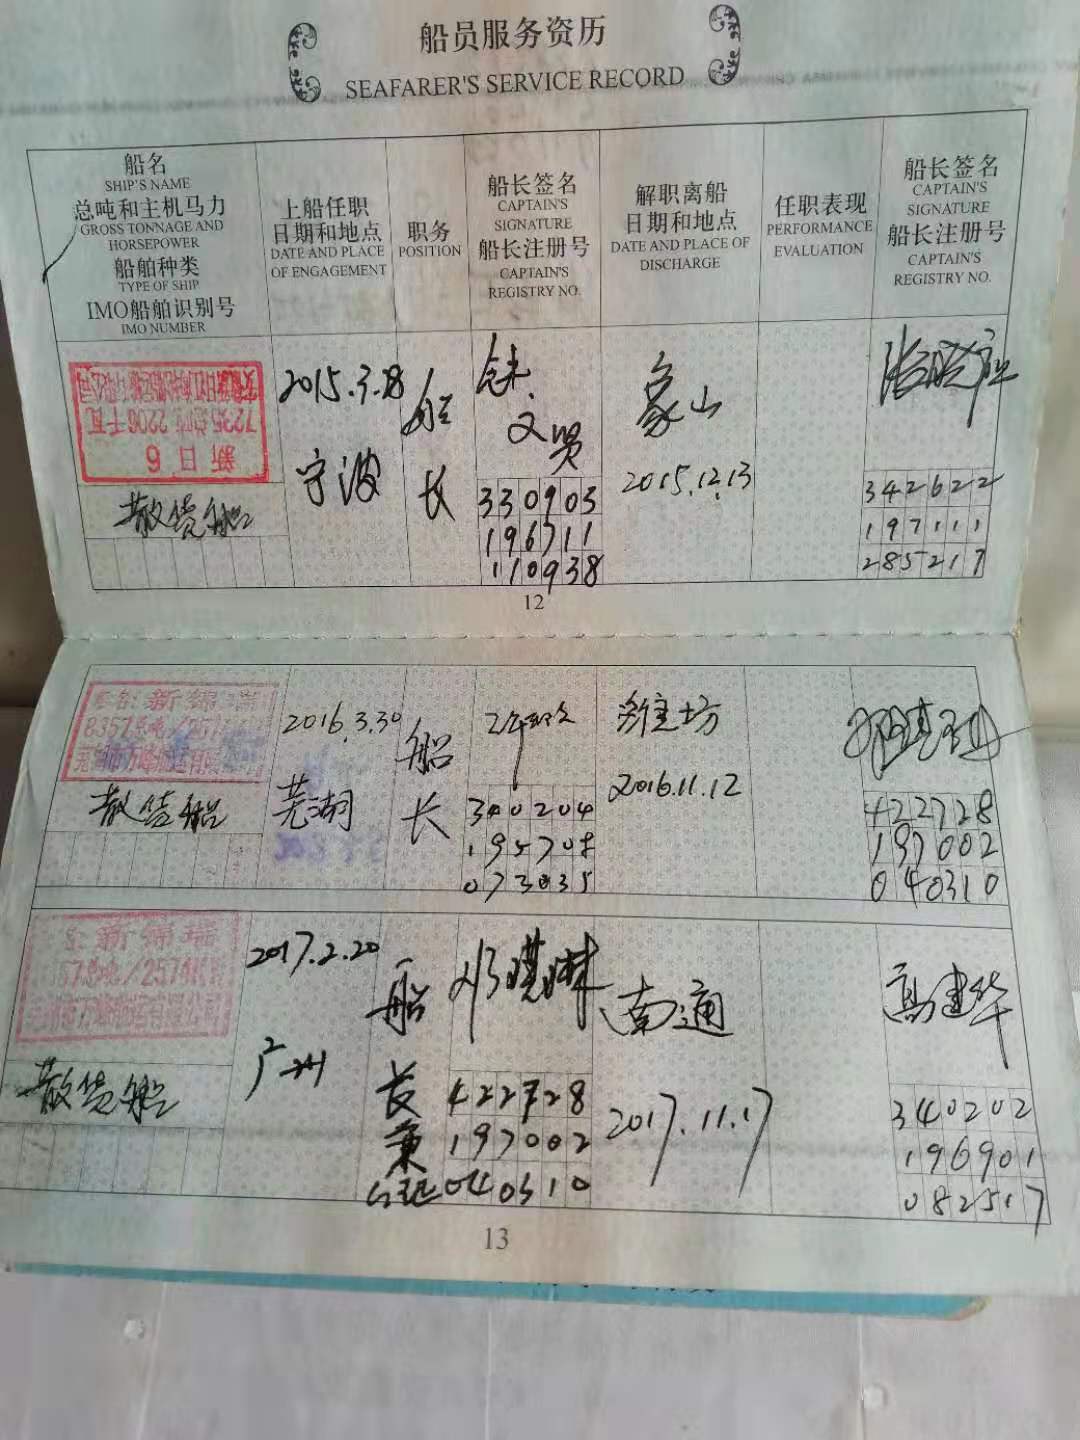 船员服务资历
SEAFARER'S SERVICE RECORD
船名
SHIP'S NAME
总吨和主机马力
GROSS TONNAGE AND
HORSEPOWER
船舶种类
TYPE OF SHIP
IMO船舶识别号
IMO NUMBER
上船任职
日期和地点
DATE AND PLACE
OF ENGAGEMENT
职务
POSITION
船长签名
CAPTAIN'S
SIGNATURE
船长注册号
CAPTAIN'S
REGISTRY NO.
解职离船
日期和地点
DATE AND PLACE OF
DISCHARGE
任职表现
PERFORMANCE
EVALUATION
船长签名
CAPTAIN'S
SIGNATURE
船长注册号
CAPTAIN'S
REGISTRY NO.
新日6
7235总吨 2206千瓦
散货船
2015.3.28
宁波
船长
文贤
330903
196711
110938
象山
2015.12.13
342622
197111
285217
12
船名:新锦瑞
8357总吨/257
芜湖市万峰航运有限
散货船
2016.3.30
芜湖
船长
340204
195708
073035
潍坊
2016.11.12
422728
197002
040310
名:新锦瑞
357总吨/2574K
芜湖市万峰航运有限公司
散货船
2017.2.20
广州
船
长
兼
422728
197002
040310
南通
2017.11.17
高建华
340202
196901
082517
13